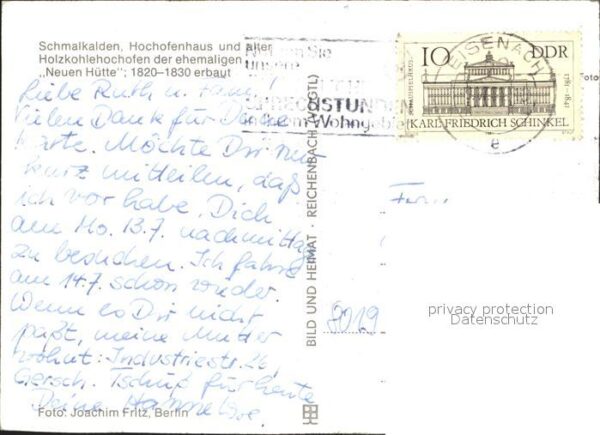 Schmalkalden, Hochofenhaus und alter
Holzkohlehochofen der ehemaligen
„Neuen Hütte"; 1820–1830 erbaut
Liebe Ruth u. Fam.!
Vielen Dank für Deine
Karte. Möchte Dir nur
kurz mitteilen, daß
ich vor habe, Dich
am Mo. 13.7. nachmittag
zu besuchen. Ich fahre
am 14.7. schon wieder.
Wenn es Dir nicht
paßt, meine Mutter
wohnt: Industriestr. 26,
Gersth. Tschüß für heute
Deine Hannelore
Foto: Joachim Fritz, Berlin
BILD UND HEIMAT · REICHENBACH (VOGTL)
Nutzen Sie
unsere
SPRECHSTUNDEN
in Ihrem Wohngebiet
EISENACH
e
10 DDR
SCHAUSPIELHAUS
KARL FRIEDRICH SCHINKEL
Foto
8019
privacy protection
Datenschutz